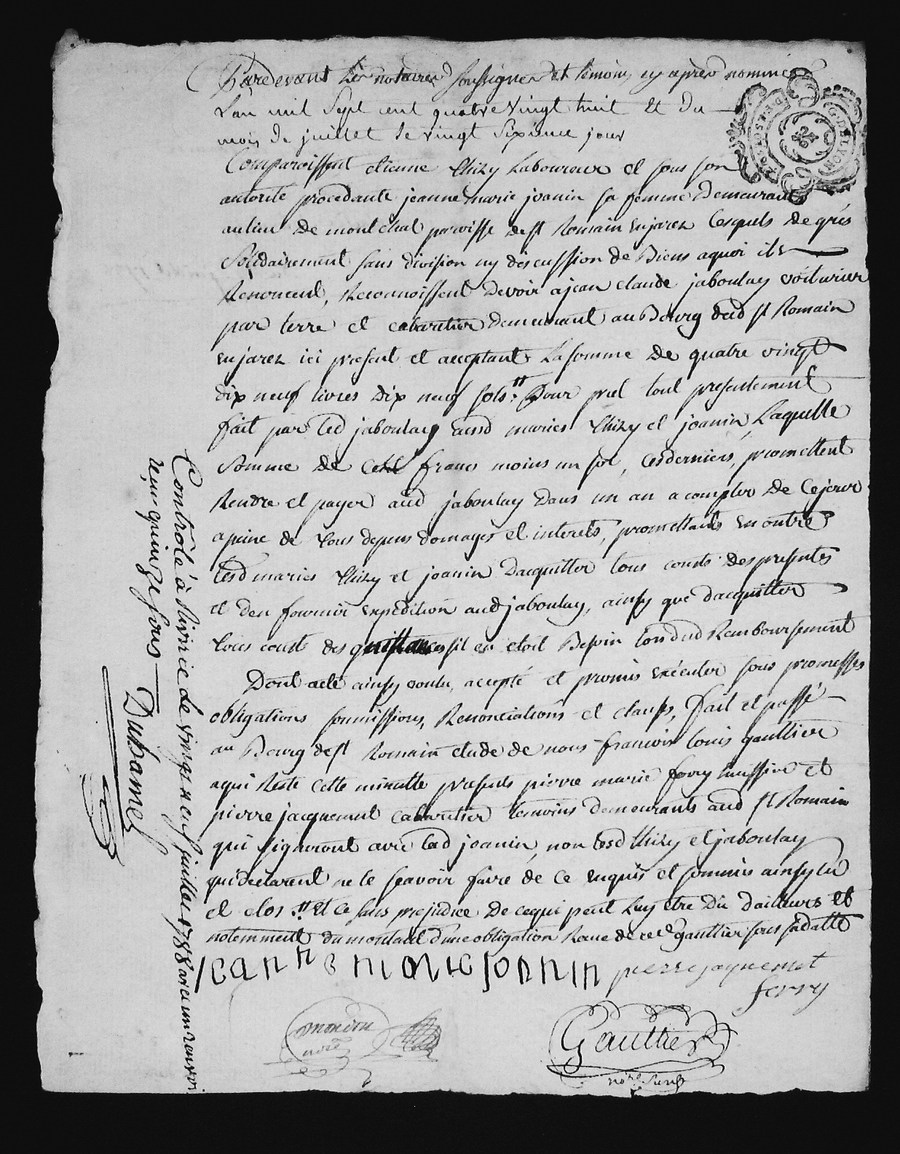 Pardevant les notaires soussignés et temoins cy après nommés
L'an mil sept cent quatre vingt huit et du
mois de juillet le vingt sixieme jour
Comparoissent etienne thizy Laboureur et sous son
autorité procedante jeanne marie joanin sa femme Demeurants
au lieu de montchal paroisse de st Romain en jarez Lesquels de grés
Solidairement sans division ny discussion de Biens a quoi ils
Renoncent, Reconnoissent devoir a jean claude jaboulay voiturier
par terre et cabaretier demeurant au Bourg dud st Romain
en jarez ici present et acceptant La somme de quatre vingt
dix neuf livres dix neuf sols tt Pour pret tout presentement
fait par led jaboulay auxd mariés thizy et joanin Laquelle
Somme de cent francs moins un sol, cesderniers, promettent
Rendre et payer aud jaboulay dans un an a compter de ce jour
a peine de tous depens domages et interets, promettants en outre
lesd mariés thizy et joanin dacquitter tous couts des presentes
et den fournir expedition aud jaboulay, ainsy que dacquitter
tous couts des quittances sil en etoit Besoin lors dud Remboursement
Dont acte ainsy voulu, accepté et promis exécuter sous promesses
obligations soumissions, Renonciations et clauses, fait et passé
au Bourg de st Romain etude de nous francois louis gaultier
a qui Reste cette minutte presents pierre marie ferry huissier et
pierre jacquemont cabaretier temoins demeurants aud st Romain
qui signeront avec lad joanin, non lesd thizy et jaboulay
qui declarent ne le scavoir faire de ce enquis et sommés ainsy lu
et clos tt Et ce sans prejudice de ce qui peut luy etre Du d'ailleurs et
notemment du montant d'une obligation Recue de gaultier sous sa datte
jeanne marie jonnin pierre jaquemot
ferry
mondon
nore
Gaultier
nore
Contrôlé à St vingt neuf juillet 1788 avec un renvoi
reçu quinze sous
Duhamel
G. DE LYON